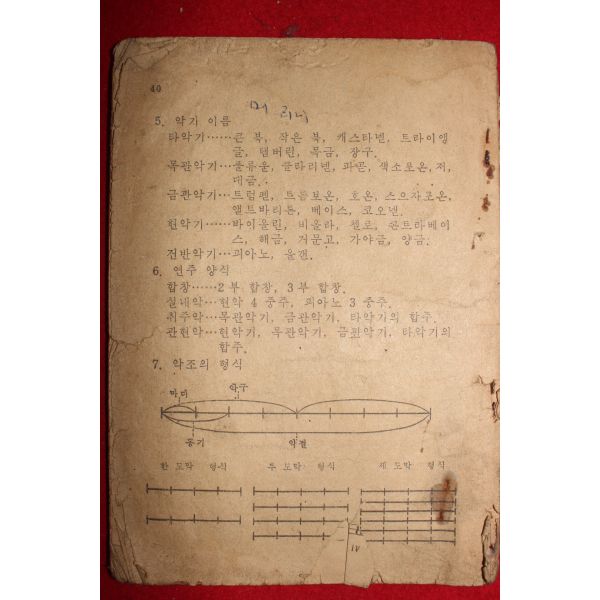 40
머 리니
5. 악기 이름
타악기……큰 북, 작은 북, 캐스타넬, 트라이앵
글, 탬버린, 목금, 장구.
목관악기…플류우트, 클라리넬, 파곧, 색소포온, 저,
대금.
금관악기…트럼펟, 트롬보온, 호온, 스으자포온,
앨트바리톤, 베이스, 코오넬.
현악기……바이올린, 비올라, 첼로, 콘트라베이
스, 해금, 거문고, 가야금, 양금.
전반악기…피아노, 올갠.
6. 연주 양식
합창……2부 합창, 3부 합창.
실내악…현악 4 중주, 피아노 3 중주.
취주악…목관악기, 금관악기, 타악기의 합주.
관현악…현악기, 목관악기, 금관악기, 타악기의
합주.
7. 악조의 형식
마디 악구
동기 악절
한 도막 형식 두 도막 형식 세 도막 형식